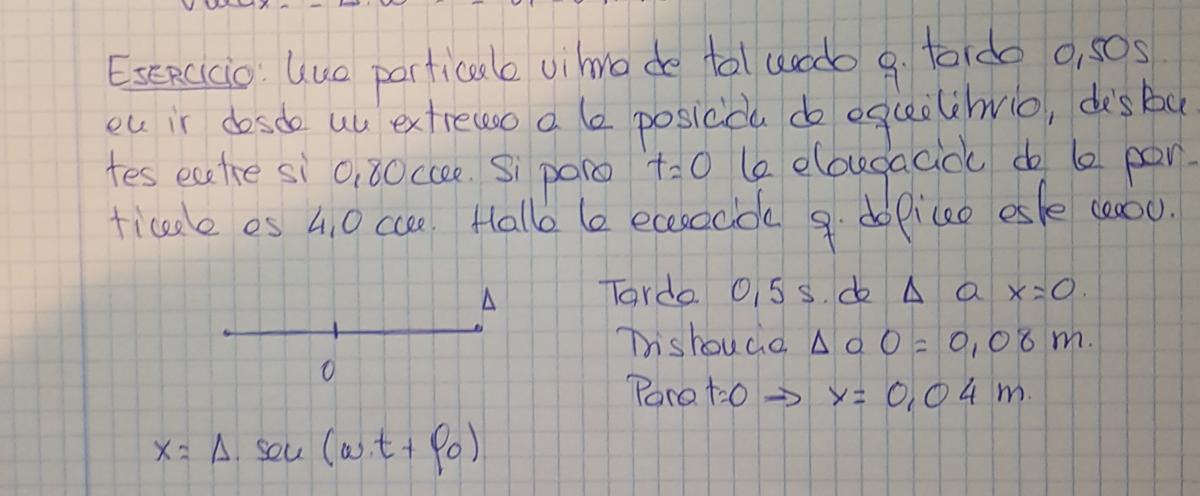 EJERCICIO: Una partícula vibra de tal modo q. tarda 0,50s.
en ir desde un extremo a la posición de equilibrio, distan
tes entre si 0,80cm. Si para t=0 la elongación de la par-
tícula es 4,0 cm. Halla la ecuación q. define este mov.
A
Tarda 0,5 s. de A a x=0.
0
Distancia A a 0 = 0,08 m.
Para t=0 → x= 0,04 m.
x= A. sen (ω.t + φ0)